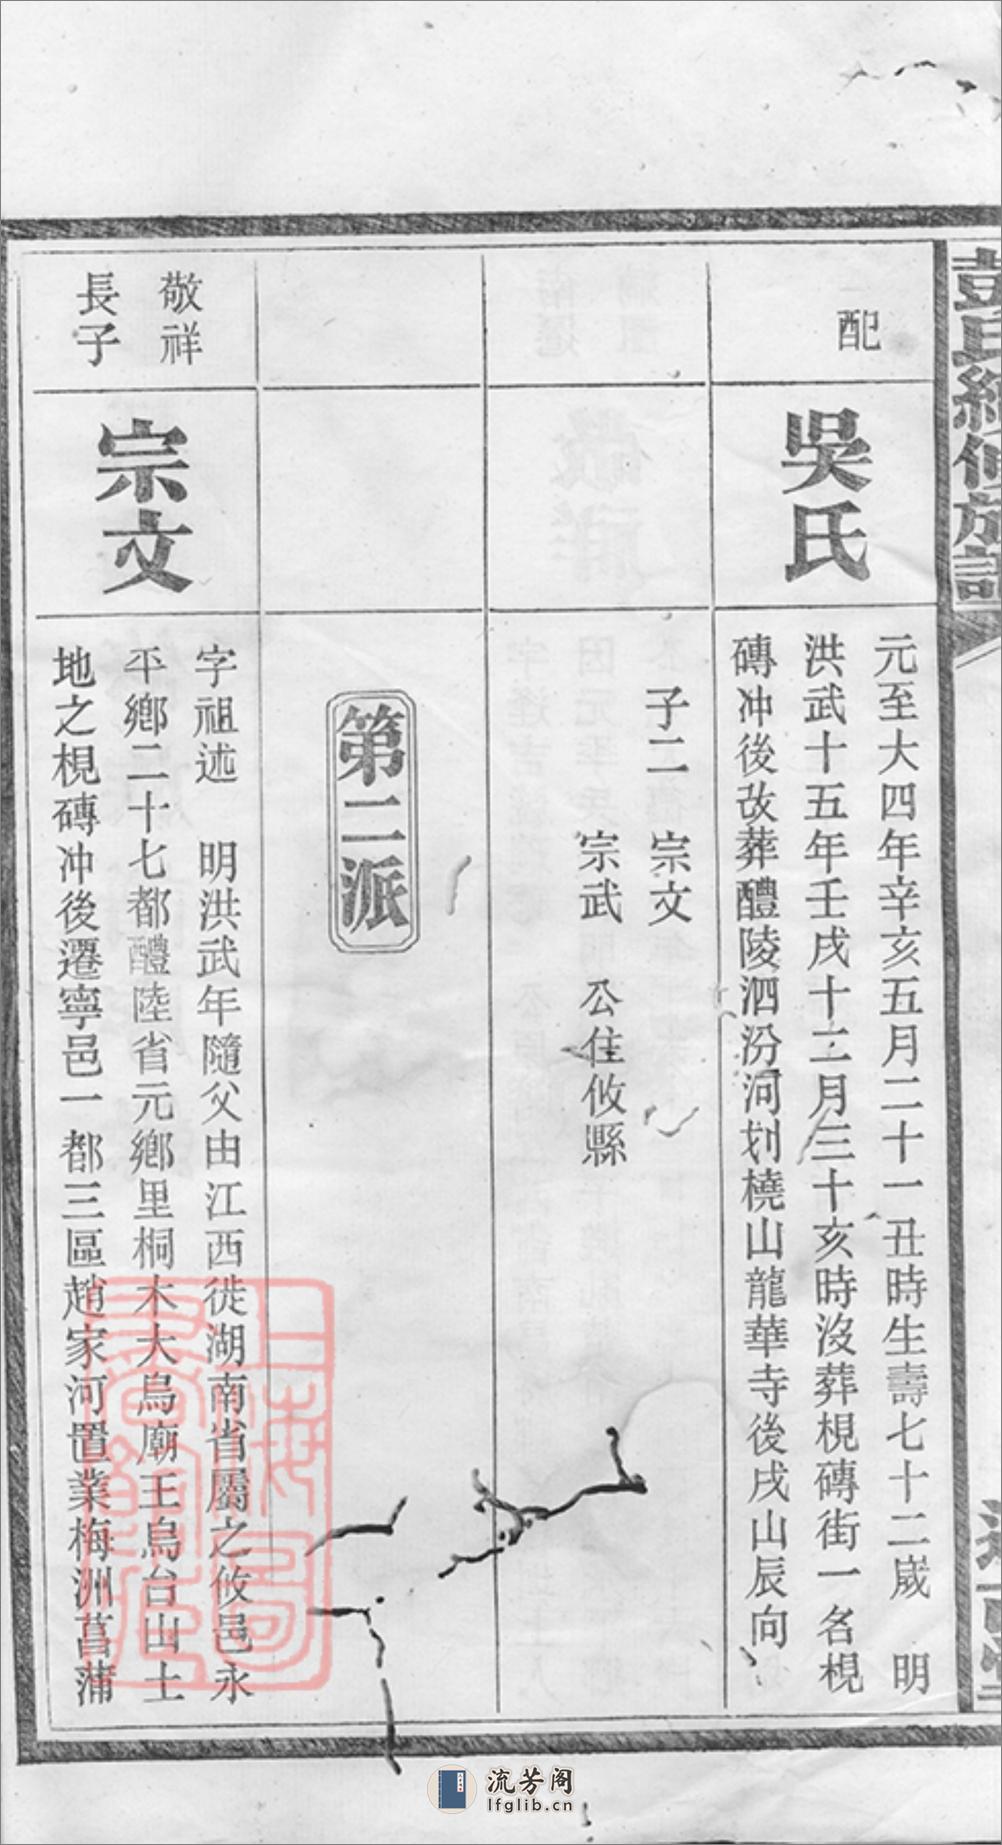 彭氏續修族譜
配
吳氏
元至大四年辛亥五月二十一丑時生壽七十二歲　明
洪武十五年壬戌十二月三十亥時沒葬梘磚街一名梘
磚冲後改葬醴陵泗汾河划橈山龍華寺後戌山辰向
子二　宗文
宗武　公住攸縣
第二派
敬祥
長子
宗文
字祖述　明洪武年隨父由江西徙湖南省屬之攸邑永
平鄉二十七都醴陸省元鄉里桐木大烏廟王烏台山土
地之梘磚冲後遷寧邑一都三區趙家河置業梅洲菖蒲
上海圖書館藏
流芳阁
lfglib.cn